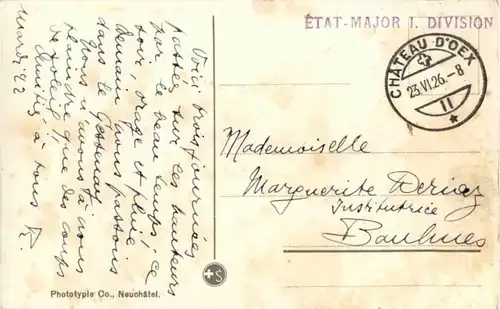 ÉTAT-MAJOR I. DIVISION
CHÂTEAU D'OEX
23.VI.26.-8
II
Mardi 22
Voici trois journées
passées sur ces hauteurs
par le beau temps, ce
soir, orage et pluie
demain nous passons
dans le Gessenay.
Nous n'avons à nous
plaindre que des coups
de soleil.
Amitiés à tous
Mademoiselle
Marguerite Deriaz
Institutrice
Baulmes
S
Phototypie Co., Neuchâtel.